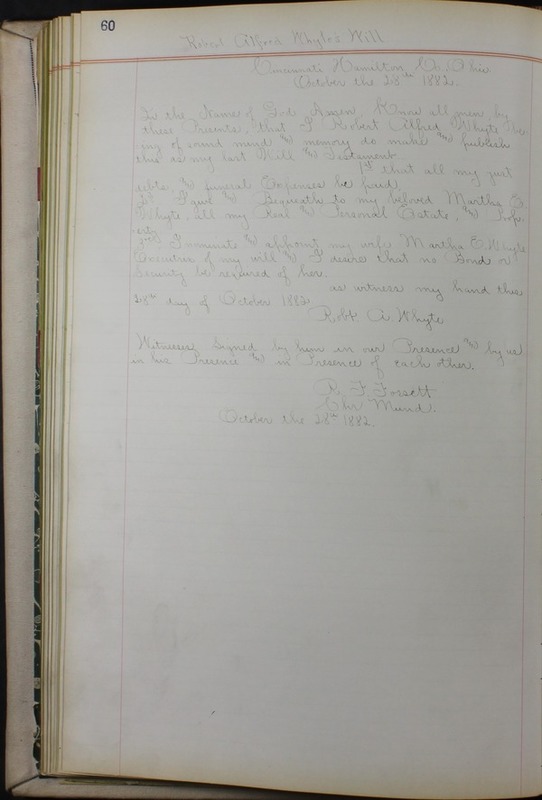 60
Robert Alfred Whyte's Will
Cincinnati Hamilton Co. Ohio
October the 28th 1882.
In the Name of God Amen, Know all men by
these Presents, that I Robert Alfred Whyte be
ing of sound mind & memory do make & publish
this as my last Will & Testament.
1st that all my just
debts & funeral Expenses be paid.
2d I give & Bequeath to my beloved Martha E.
Whyte, all my Real & Personal Estate, & Prop.
erty
3rd I nominate & appoint my wife Martha E. Whyte
Executrix of my will & I desire that no Bond or
Security be required of her.
as witness my hand this
28th day of October 1882.
Robt. A. Whyte
Witnesses Signed by him in our Presence & by us
in his Presence & in Presence of each other.
R. F. Fossett
Chr Mund.
October the 28th 1882.